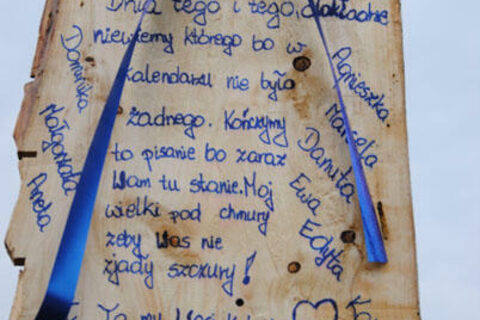 Dnia tego i tego, dokładnie
niewiemy którego bo w
kalendarzu nie było
żadnego. Kończymy
to pisanie bo zaraz
Wam tu stanie. Moj
wielki pod chmury
żeby Was nie
zjady szczury!
To my Was
Dominika
Małgorzata
Aneta
Agnieszka
Marcela
Danuta
Ewa
Edyta